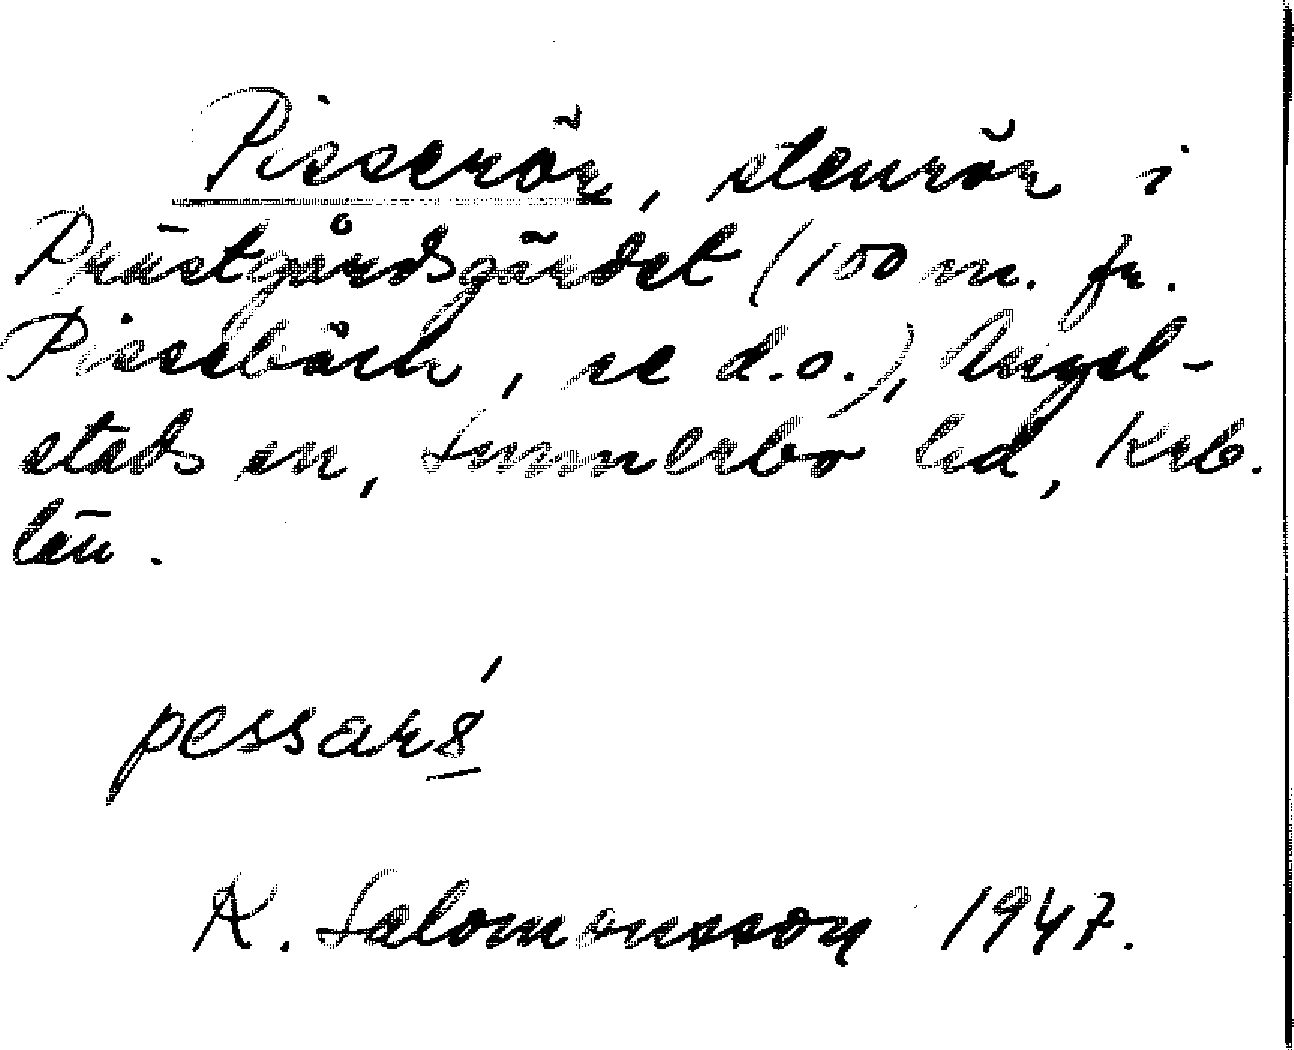 Pisserör, stenrör i
Prästgårdsgärdet (100 m. fr.
Pissebåck, se d.o.), Angel-
stads sn, Sunnerbo hd, Krb.
län.
pessarś
K. Salomonsson 1947.